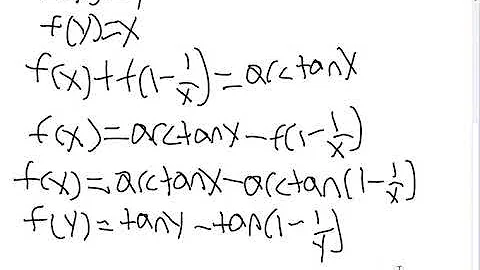 f(y)=x
f(x)+f(1-1/x)=arctanx
f(x)=arctanx-f(1-1/x)
f(x)=arctanx-arctan(1-1/x)
f(y)=tany-tan(1-1/y)